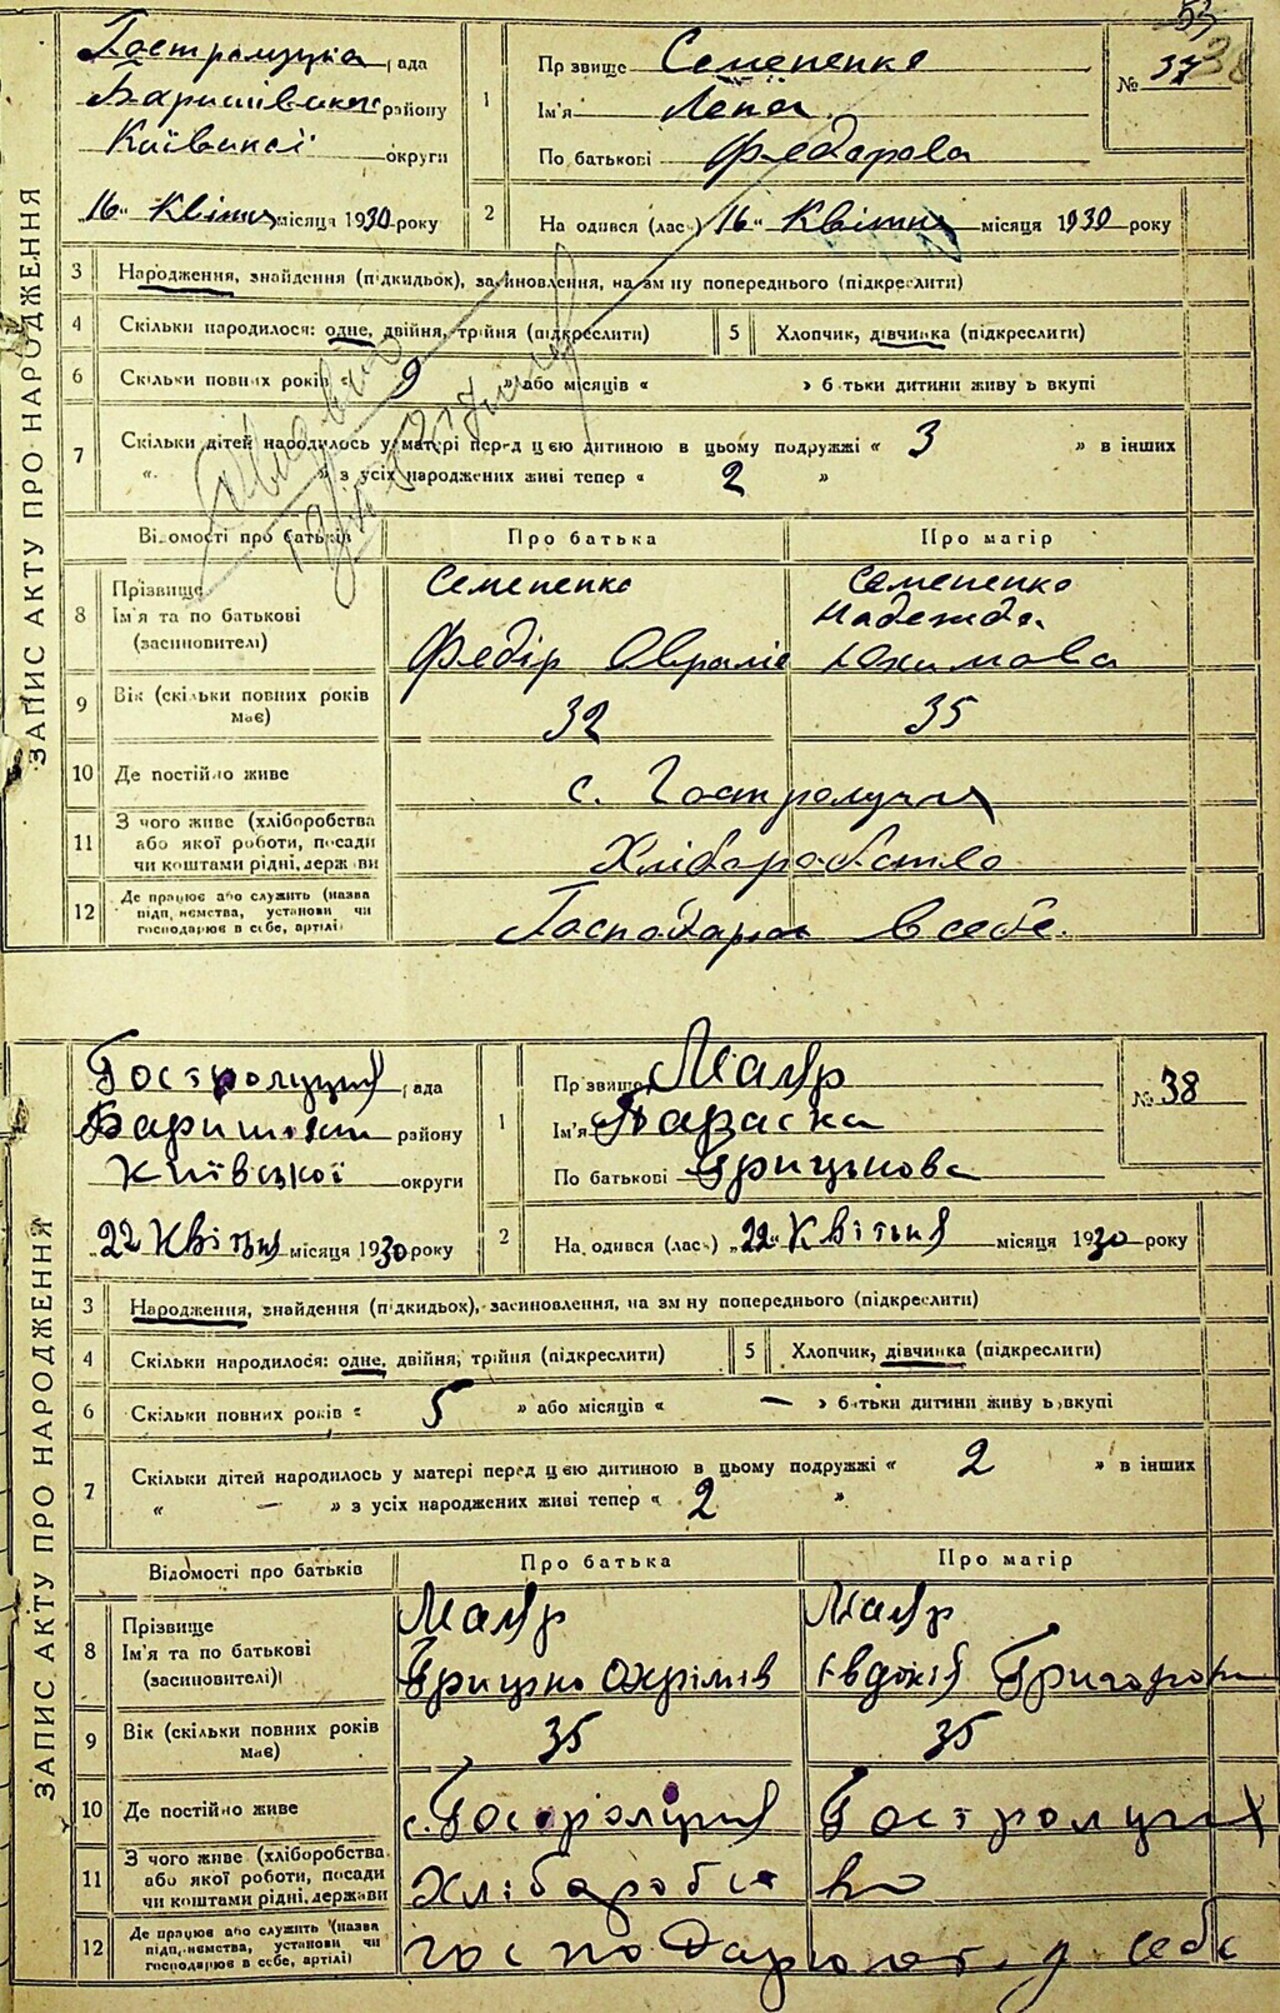 53
38
ЗАПИС АКТУ ПРО НАРОДЖЕННЯ
Гостролуцка рада
Баришівськог району
Київської округи
„16“ Квітня місяця 1930 року
1
Прізвище Семененко
Ім'я Лена
По батькові Федорова
№ 37
2
Народився (лась) „16“ Квітня місяця 1930 року
3 Народження, знайдення (підкидьок), засиновлення, на зміну попереднього (підкреслити)
4 Скільки народилося: одне, двійня, трійня (підкреслити)
5 Хлопчик, дівчинка (підкреслити)
6 Скільки повних років « 9 » або місяців « » батьки дитини живуть вкупі
7 Скільки дітей народилось у матері перед цією дитиною в цьому подружжі « 3 » в інших
« » з усіх народжених живі тепер « 2 »
Відомості про батьків
Про батька
Про матір
8 Прізвище
Ім'я та по батькові
(засиновителі)
Семененко
Федір Оврамів
Семененко
Надежда
Юхимова
9 Вік (скільки повних років має)
32
35
10 Де постійно живе
с. Гостролуччя
11 З чого живе (хліборобства
або якої роботи, посади
чи коштами рідні, держави
Хліборобство
12 Де працює або служить (назва
підприємства, установи чи
господарює в себе, артілі)
Господарює в себе.
ЗАПИС АКТУ ПРО НАРОДЖЕННЯ
Гостролуцкя рада
Баришівськ району
Київської округи
„22 Квітня місяця 1930 року
1
Прізвище Маляр
Ім'я Параска
По батькові Грицькова
№ 38
2
Народився (лась) „22“ Квітня місяця 1930 року
3 Народження, знайдення (підкидьох), засиновлення, на зміну попереднього (підкреслити)
4 Скільки народилося: одне, двійня, трійня (підкреслити)
5 Хлопчик, дівчинка (підкреслити)
6 Скільки повних років « 5 » або місяців « — » батьки дитини живуть вкупі
7 Скільки дітей народилось у матері перед цією дитиною в цьому подружжі « 2 » в інших
« — » з усіх народжених живі тепер « 2 »
Відомості про батьків
Про батька
Про матір
8 Прізвище
Ім'я та по батькові
(засиновителі)
Маляр
Грицько Охрімів
Маляр
Євдокія Григоров
9 Вік (скільки повних років має)
35
35
10 Де постійно живе
с. Гостролуччя
Гостролуччя
11 З чого живе (хліборобства
або якої роботи, посади
чи коштами рідні, держави
Хліборобство
12 Де працює або служить (назва
підприємства, установи чи
господарює в себе, артілі)
господарюють у себе